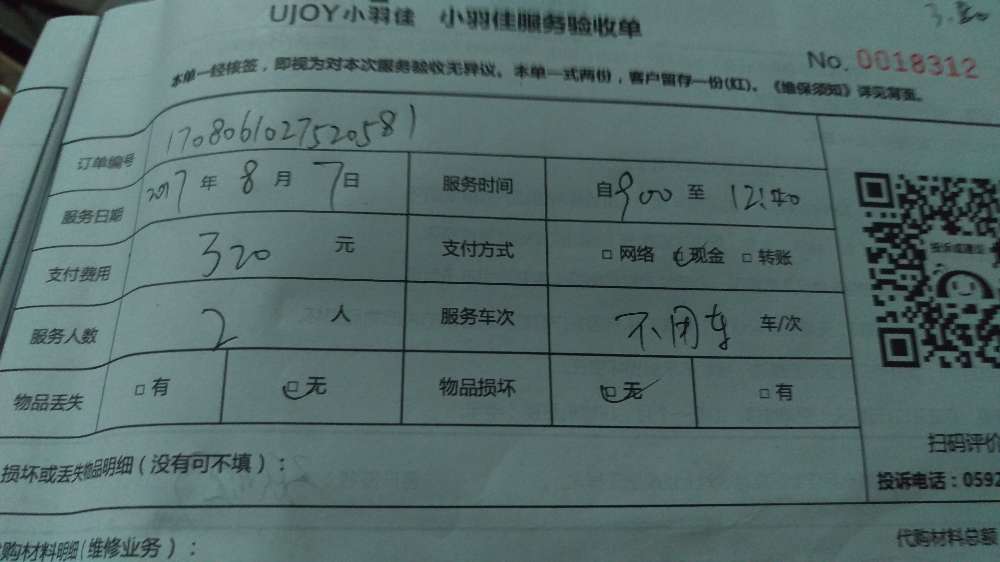 UJOY小羽佳 小羽佳服务验收单
No. 0018312
本单一经核签,即视为对本次服务验收无异议。本单一式两份,客户留存一份(红)。《维保须知》详见背面。
订单编号 1708061027520581
服务日期 2017年8月7日 服务时间 自900至12:40
支付费用 320元 支付方式 □网络 □现金 □转账
服务人数 2人 服务车次 不用车 车/次
物品丢失 □有 □无 物品损坏 □无 □有
损坏或丢失物品明细(没有可不填):
扫码评价
投诉电话:0592
购材料明细(维修业务): 代购材料总额